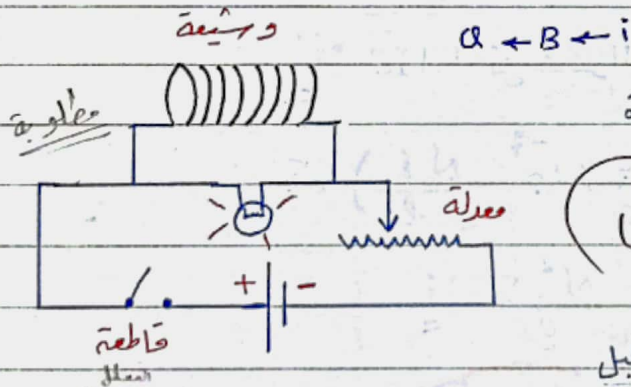 وشيعة
i → B → Φ
مطلوبة
معدلة
+ -
قاطعة